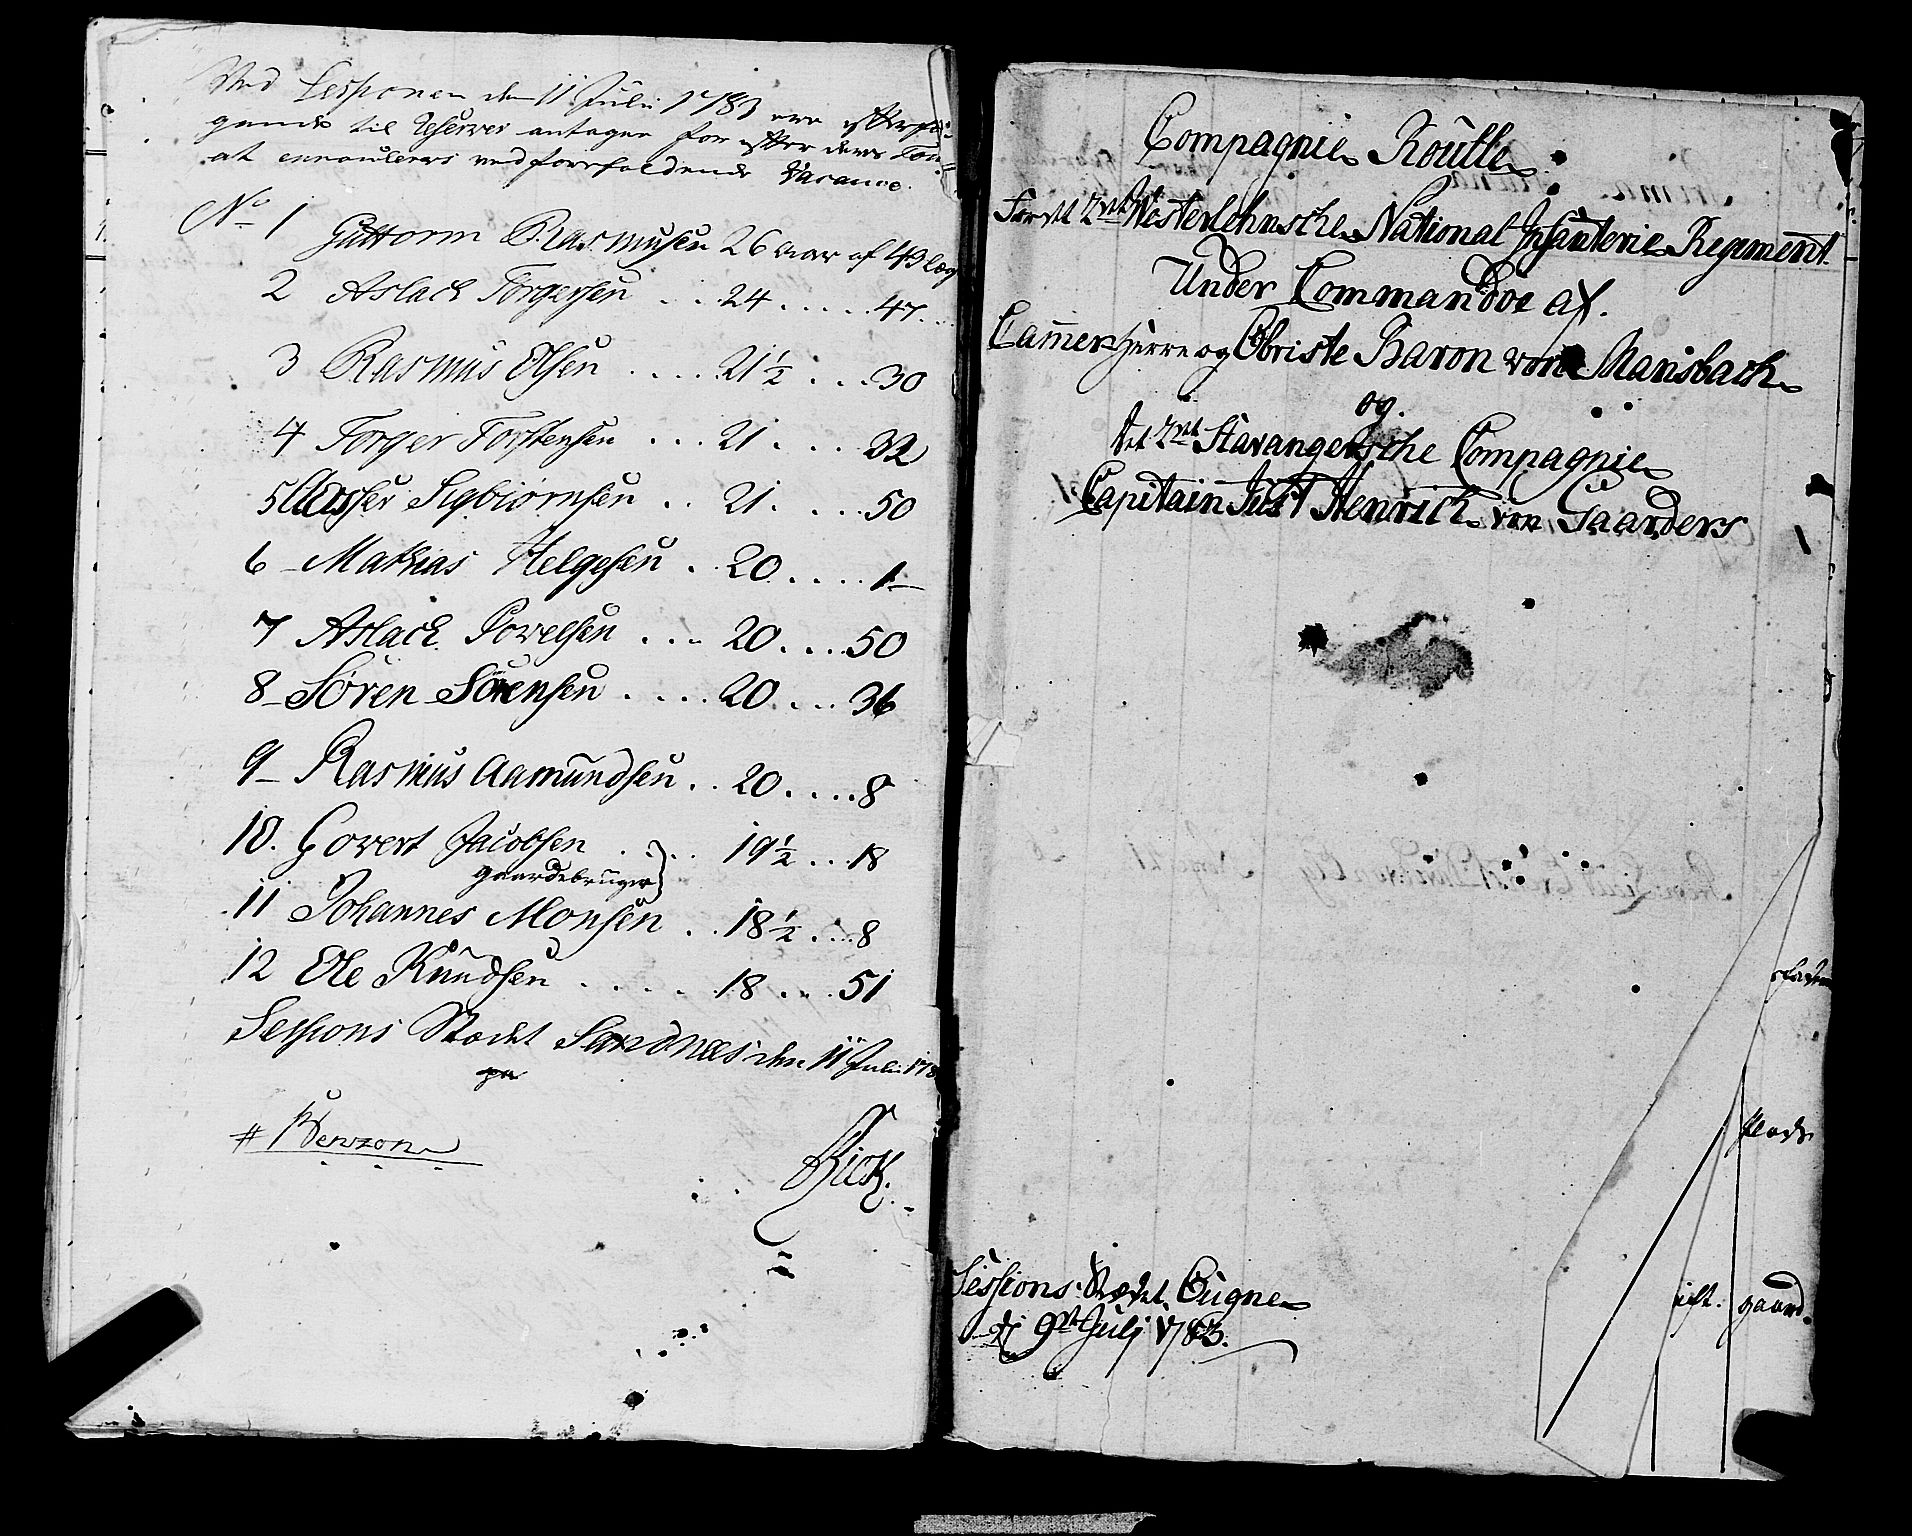 Ved Sessionen den 11 Julii 1783 ere efterføl-
gende til Reserver antagen for efter deres Tour
at enroulleres ved forefaldende Vacance.
No 1 Guttorm Rasmusen 26 aar af 43 læg
2 Aslach Törgersen . . 24 . . . . . 47 . .
3 Rasmus Olsen . . . . 21 1/2 . . . 30
4 Torger Torstensen . . . 21 . . . . 32
5 Asser Sigbiörnsen . . 21 . . . . 50
6 Mathias Helgesen . . 20 . . . . 1
7 Aslach Povelsen . . . 20 . . . . 50
8 Sören Sörensen . . . . 20 . . . . 36
9 Rasmus Aamundsen . . 20 . . . . 8
10. Govert Jacobsen . . . 19 1/2 . . . 18
gaardebruger
11 Johannes Monsen . . 18 1/2 . . . 8
12 Ole Knudsen . . . . . 18 . . . 51
Sessions Stædet Sandnæs den 11 Julii 178
Bentzon
Bick
Compagnie Roulle
For det 2det Westerlehnske National Infanterie Regiment
Under Commandoe af
Camerherre og Obriste Baron von Mansbach
og
det 2det Stavangersche Compagnie
Capitain Just Henrich von Gaarders
Sessions Stædet Ougne
d 9de Julj 1783.
Plads
gaard.